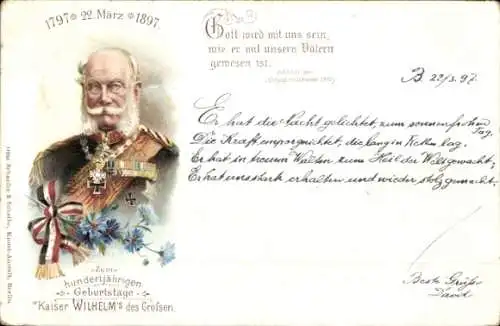 1797 * 22. März * 1897.
Gott wird mit uns sein,
wie er mit unsern Vätern
gewesen ist.
B. 22/3. 97.
Er hat die Nacht gelichtet, zum sonnenfrohen
Tag,
Die Kraft emporgerichtet, die lang in Ketten lag.
Er hat in treuem Walten zum Heil der Welt gewacht,
Er hat uns stark erhalten und wieder stolz gemacht.
Beste Grüße
David
Zum
hundertjährigen
Geburtstage
Kaiser WILHELM'S des Großen.
Kunst-Anstalt, Berlin.